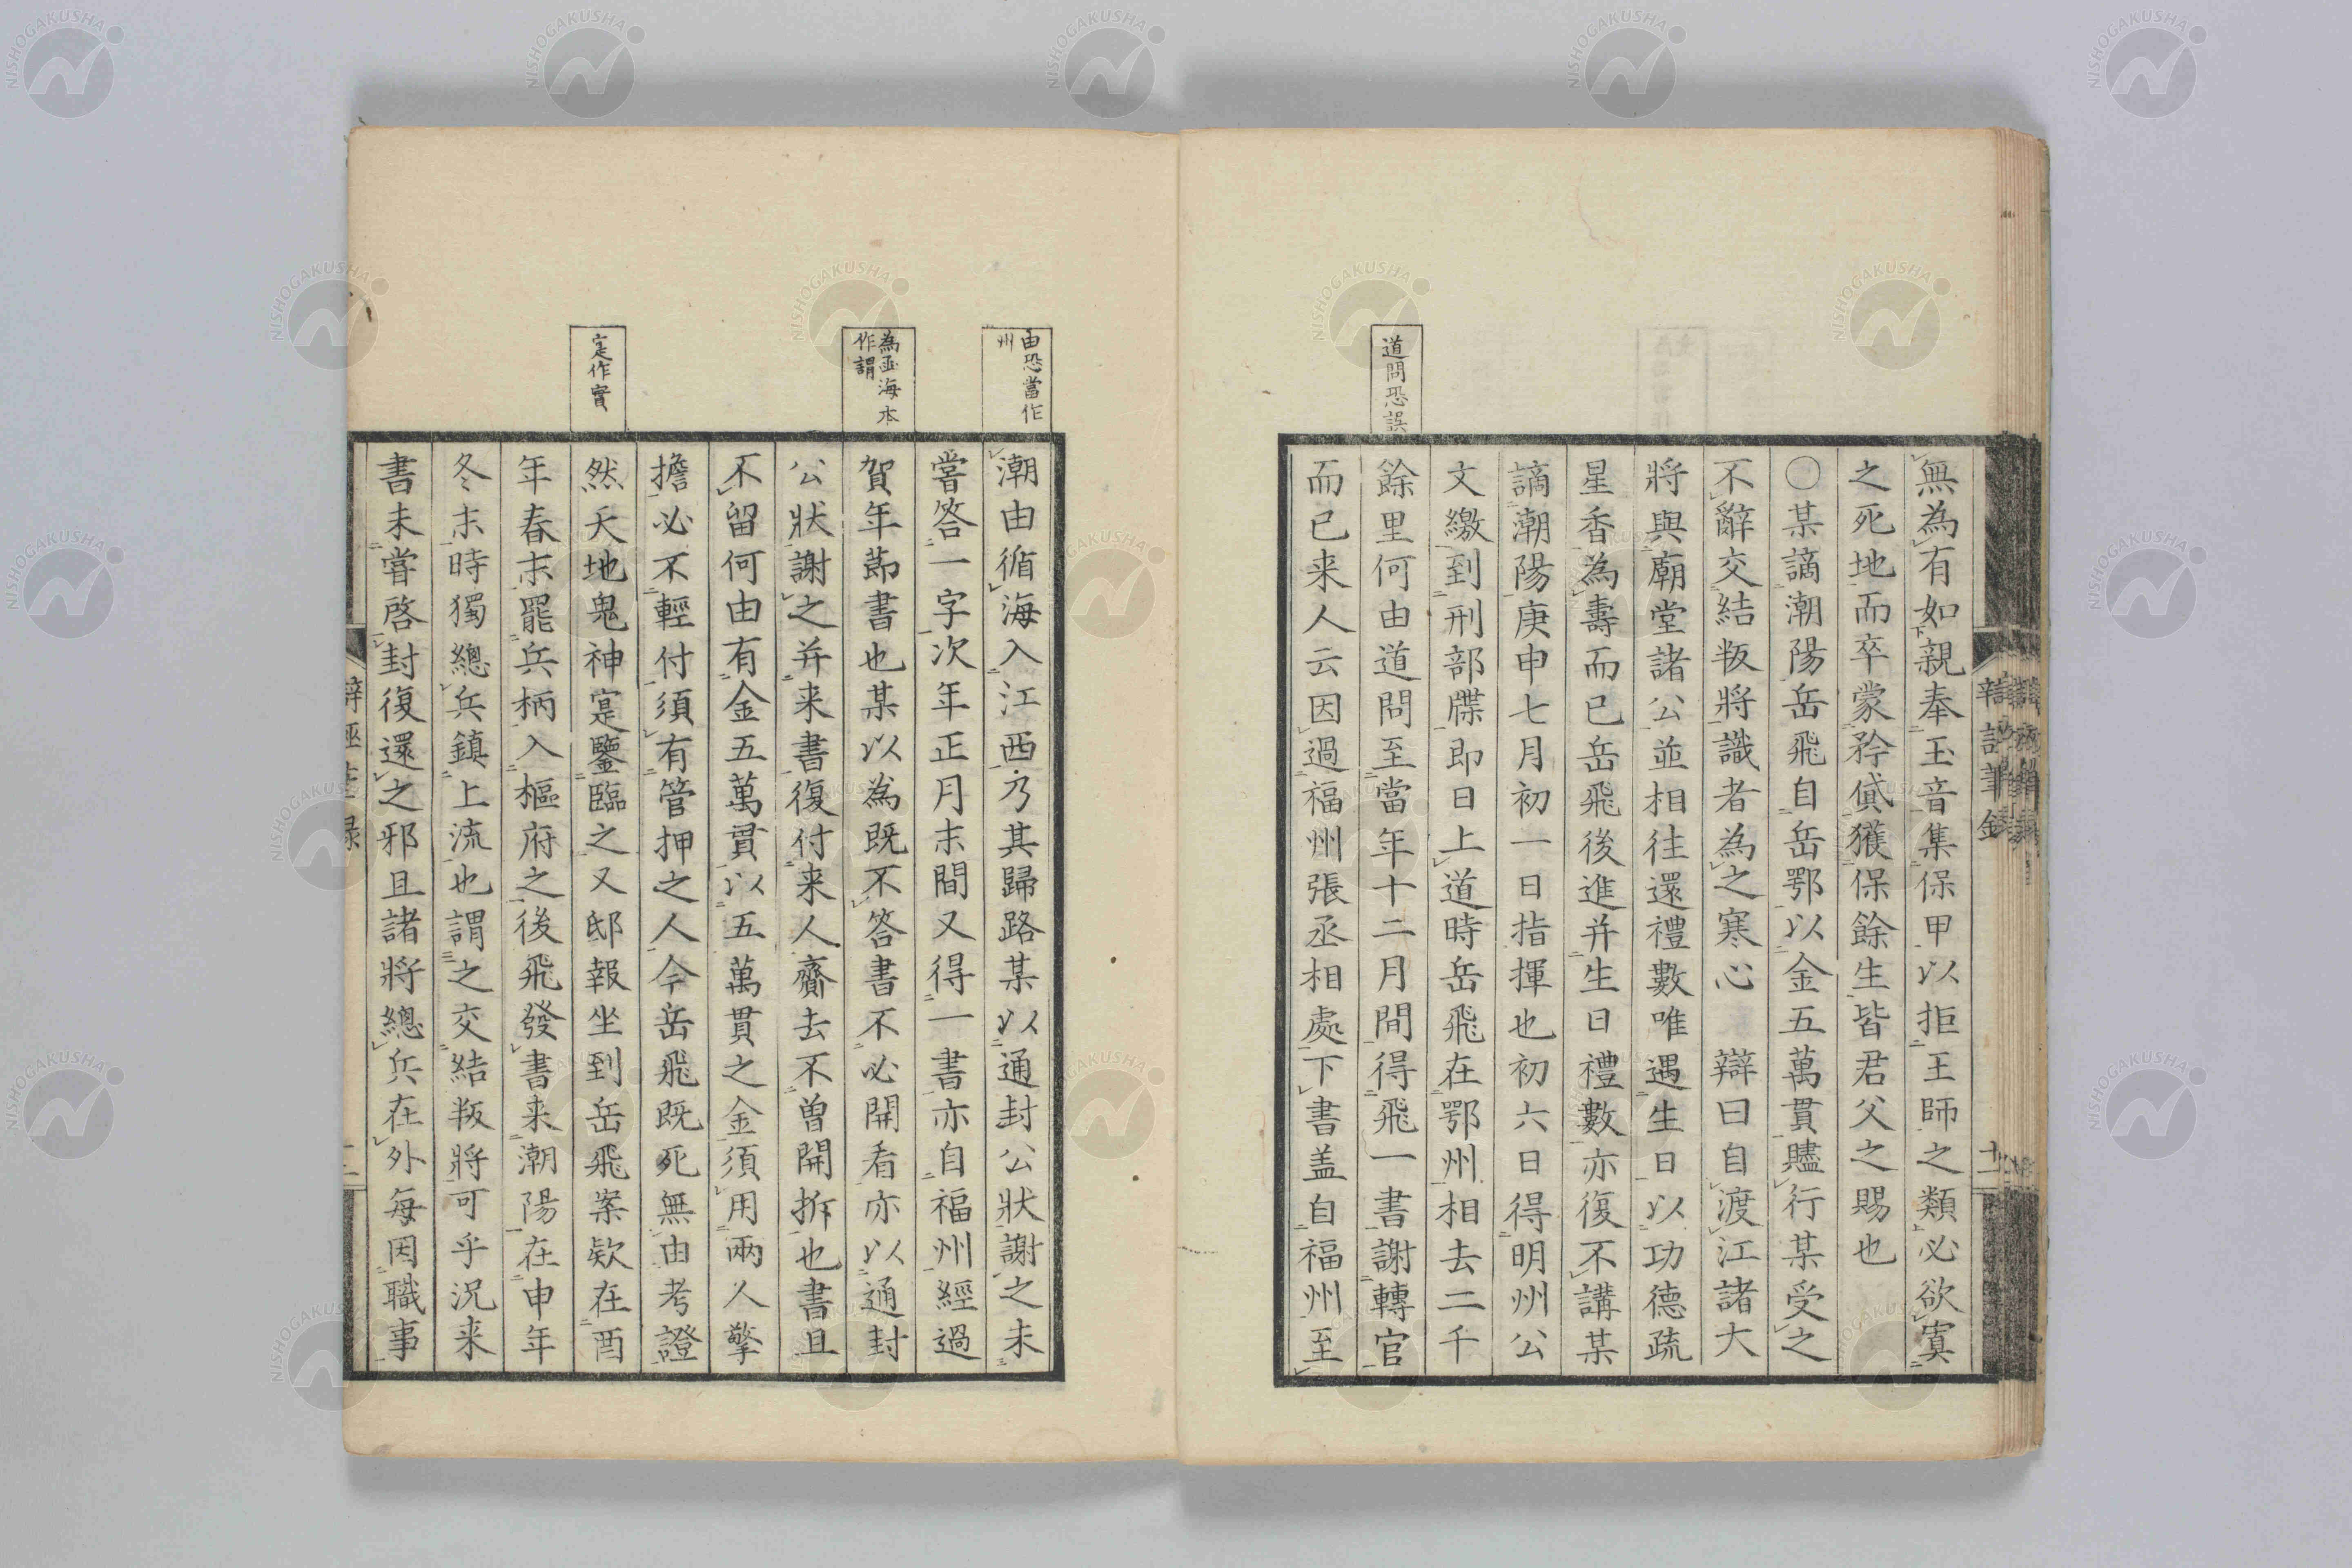 無為有如親奉玉音集保甲以拒王師之類必欲寘
之死地而卒蒙矜貸獲保餘生皆君父之賜也
〇某謫潮陽岳飛自岳鄂以金五萬貫贐行某受之
不辭交結叛將識者為之寒心　辯曰自渡江諸大
將與廟堂諸公並相往還禮數唯遇生日以功德疏
星香為壽而已岳飛後進并生日禮數亦復不講某
謫潮陽庚申七月初一日指揮也初六日得明州公
文繳到刑部牒即日上道時岳飛在鄂州相去二千
道問恐誤
餘里何由道問至當年十二月間得飛一書謝轉官
而已来人云因過福州張丞相處下書盖自福州至
由恐當作
州
潮由循海入江西乃其歸路某以通封公狀謝之未
嘗答一字次年正月末間又得一書亦自福州經過
為函海本
作謂
賀年節書也某以為既不答書不必開看亦以通封
公狀謝之并来書復付来人齎去不曽開拆也書且
不留何由有金五萬貫以五萬貫之金須用兩人擎
擔必不輕付須有管押之人今岳飛既死無由考證
定作實
然天地鬼神寔鑒臨之又邸報坐到岳飛案欵在酉
年春末罷兵柄入樞府之後飛發書来潮陽在申年
冬末時獨總兵鎮上流也謂之交結叛將可乎況来
書未嘗啓封復還之邪且諸將總兵在外每因職事
NISHOGAKUSHA